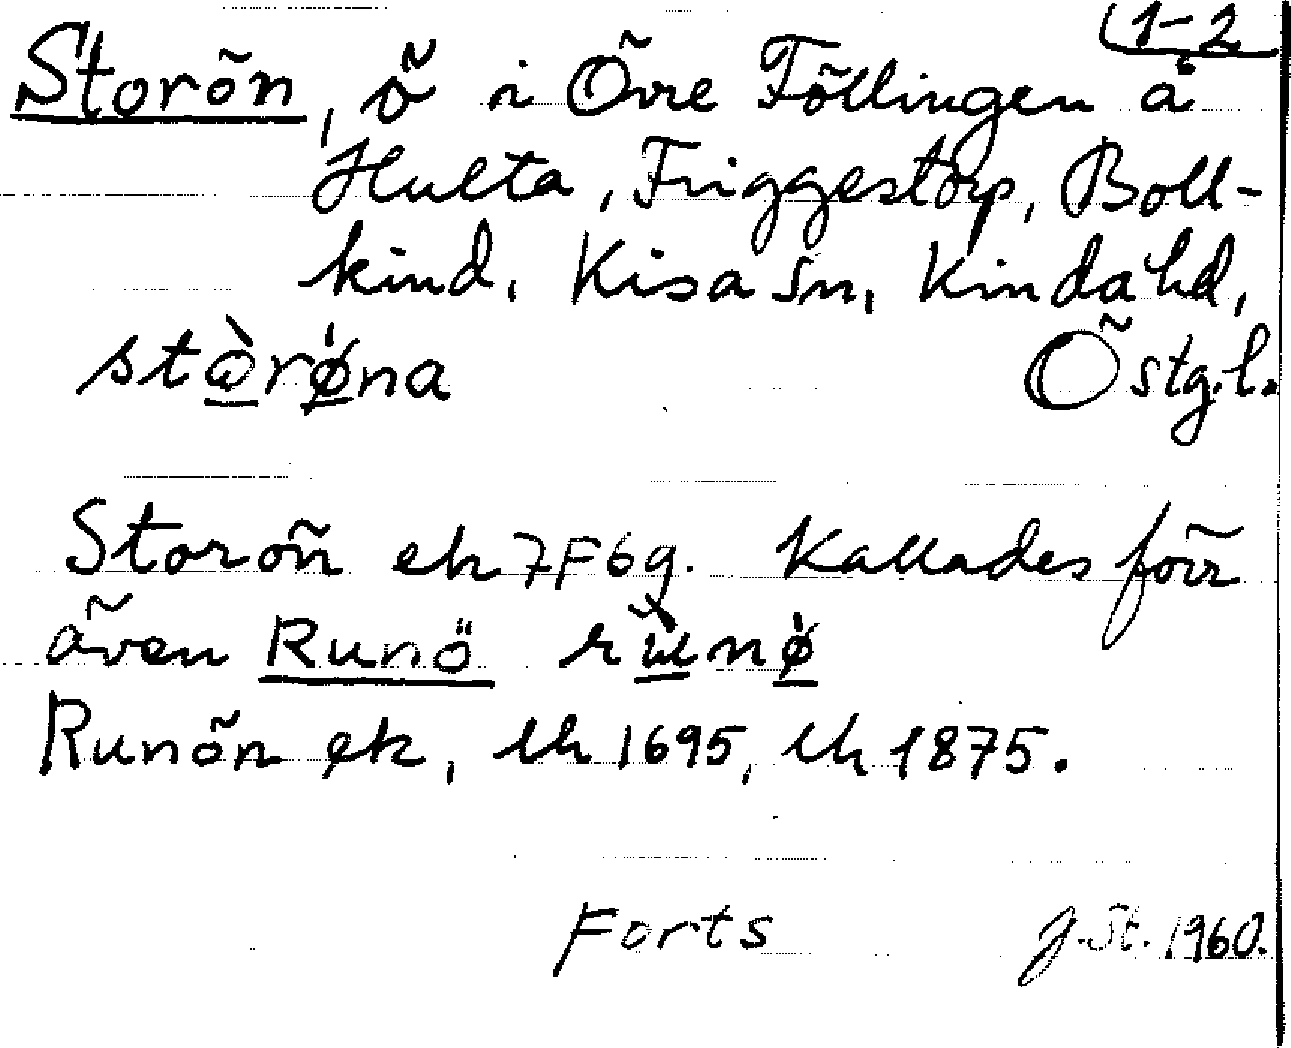 1-2
Storön, ö i Övre Föllingen å
Hulta, Friggestorp, Boll-
kind, Kisa sn, Kinda hd,
stòrǿna Östg.l.
Storön ek 7F6g. Kallades förr
även Runö rùnø̀
Runön ek, lh 1695, lh 1875.
Forts J.St. 1960.